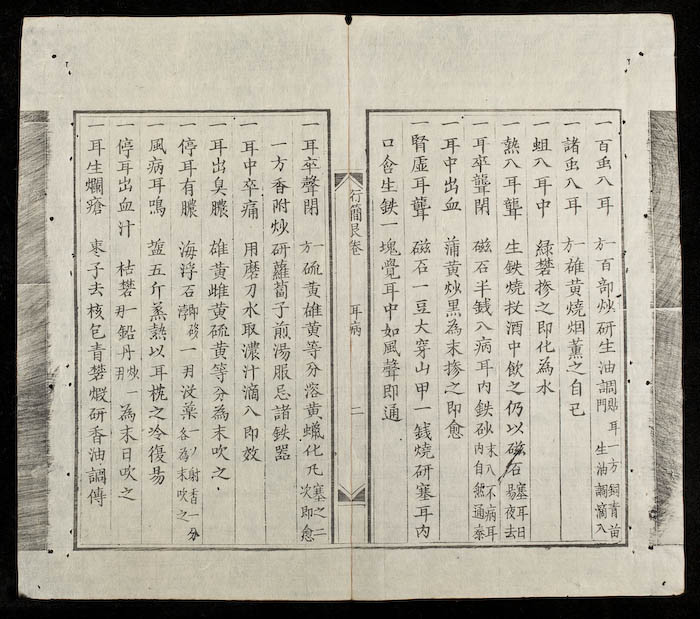 一百虫入耳 一方百部炒研生油調貼耳門 一方銅青苗生油調滴入
一諸虫入耳 一方雄黃燒烟薰之自已
一蛆入耳中 綠礬摻之即化為水
一熱入耳聾 生鉄燒投酒中飲之仍以磁石塞耳日易夜去
一耳卒聾閉 磁石半錢入病耳內鉄砂末入不病耳內自然通泰
一耳中出血 蒲黃炒黑為末摻之即愈
一腎虛耳聾 磁石一豆大穿山甲一錢燒研塞耳內
口含生鉄一塊覺耳中如風聲即通
行簡良卷 耳病 二
一耳卒聲閉 一方硫黃雄黃等分溶黃蠟化丸塞之二次即愈
一方香附炒研蘿蔔子煎湯服忌諸鉄器
一耳中卒痛 用磨刀水取濃汁滴入即效
一耳出臭膿 雄黃雌黃硫黃等分為末吹之
一停耳有膿 海浮石 一 沒藥一 射香一分各為末吹之
一風病耳鳴 塩五斤蒸熱以耳枕之冷復易
一停耳出血汁 枯礬 鉛丹炒一 為末日吹之
一耳生爛瘡 枣子去核包青礬煅研香油調傅